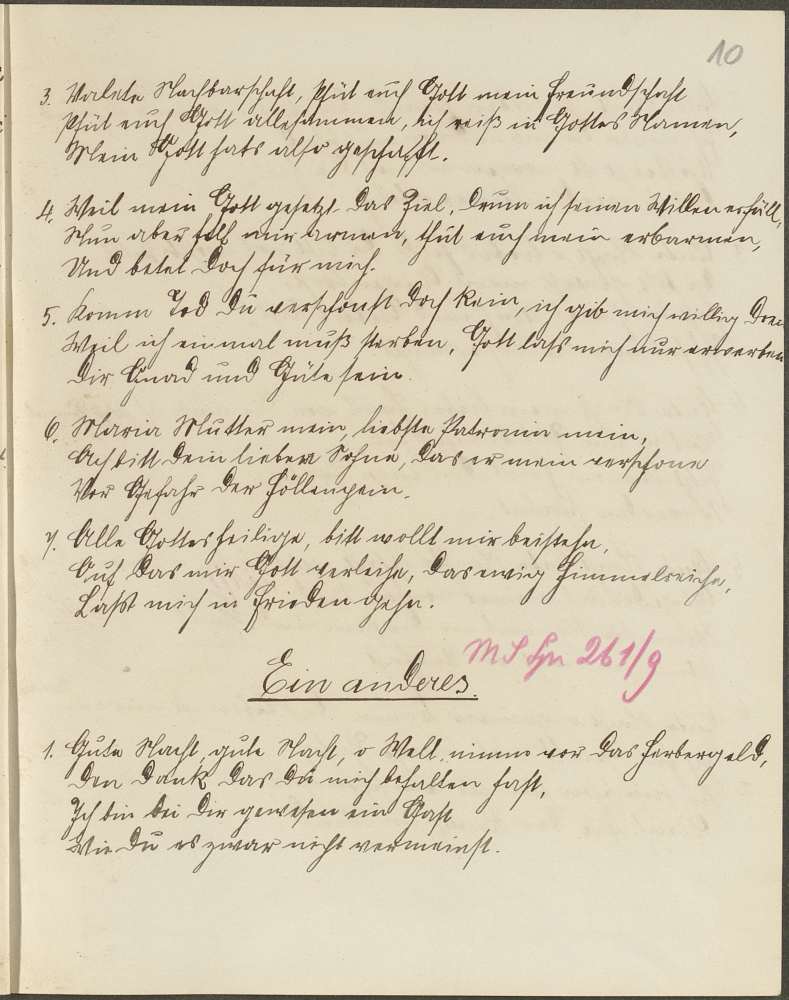 10
3. Valete Nachbarschaft, pfüt euch Gott mein Freundschaft
pfüt euch Gott allesammen, ich reiß in Gottes Namen,
Mein Gott hats also geschafft.
4. Weil mein Gott gesetzt das Ziel, drum ich seinen Willen erfüll,
Nun aber helf mir armen, thut euch mein erbarmen,
Und betet doch für mich.
5. Komm Tod du verschonst doch kein, ich gib mich willig drein
Weil ich einmal muß sterben, Gott lass mich nur erwerben
Dir Gnad und Güte sein.
6. Maria Mutter mein, liebste Patronin mein,
Ach bitt dein lieben Sohne, das er mein verschone
Vor Gefahr der Höllenpein.
7. Alle Gottesheilige, bitt wollt mir beistehn,
Auf das mir Gott verleihe, das ewig Himmelreiche,
Lasst mich in Frieden gehn.
MS 261/9
Ein anderes.
1. Gute Nacht, gute Nacht, o Welt, nimm vor das Herbergeld,
Den Dank das du mich behalten hast,
Ich bin bei dir gewesen ein Gast
Wie du es zwar nicht vermeinst.